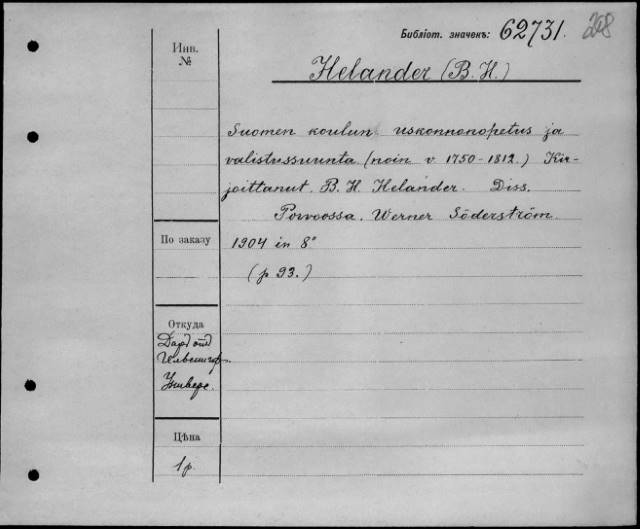 Библіот. значекъ: 62731. 268
Инв.
№
Helander (B. H.)
Suomen koulun uskonnonopetus ja
valistussuunta (noin v 1750-1812.) Kir-
joittanut. B. H. Helander. Diss.
Porvoossa. Werner Söderström.
По заказу
1904 in 8°
(p 93.)
Откуда
Универс.
Цѣна
1 р.